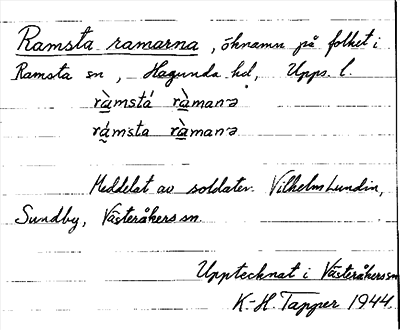 Ramsta ramarna, öknamn på folket i
Ramsta sn, Hagunda hd, Upps. l.
ràmstá ràmanə
rámsta ràmanə
Meddelat av soldaten Vilhelm Lundin,
Sundby, Västeråkers sn.
Upptecknat i Västeråkers sn
K.-H. Tapper 1944.